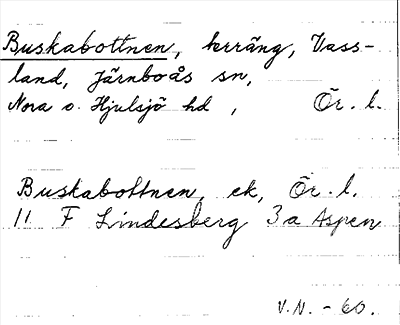 Buskabottnen, terräng, Vass-
land, Järnboås sn,
Nora o. Hjulsjö hd, Ör. l.
Buskabottnen, ek, Ör. l.
11 F Lindesberg 3 a Aspen
V.N. - 60.